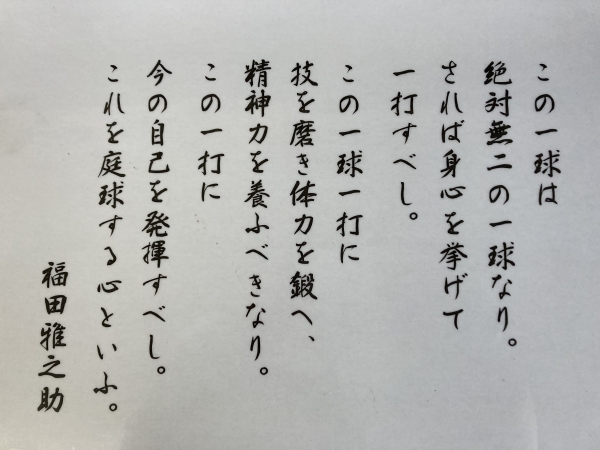 この一球は
絶対無二の一球なり。
されば身心を挙げて
一打すべし。
この一球一打に
技を磨き体力を鍛へ、
精神力を養ふべきなり。
この一打に
今の自己を発揮すべし。
これを庭球する心といふ。
福田雅之助